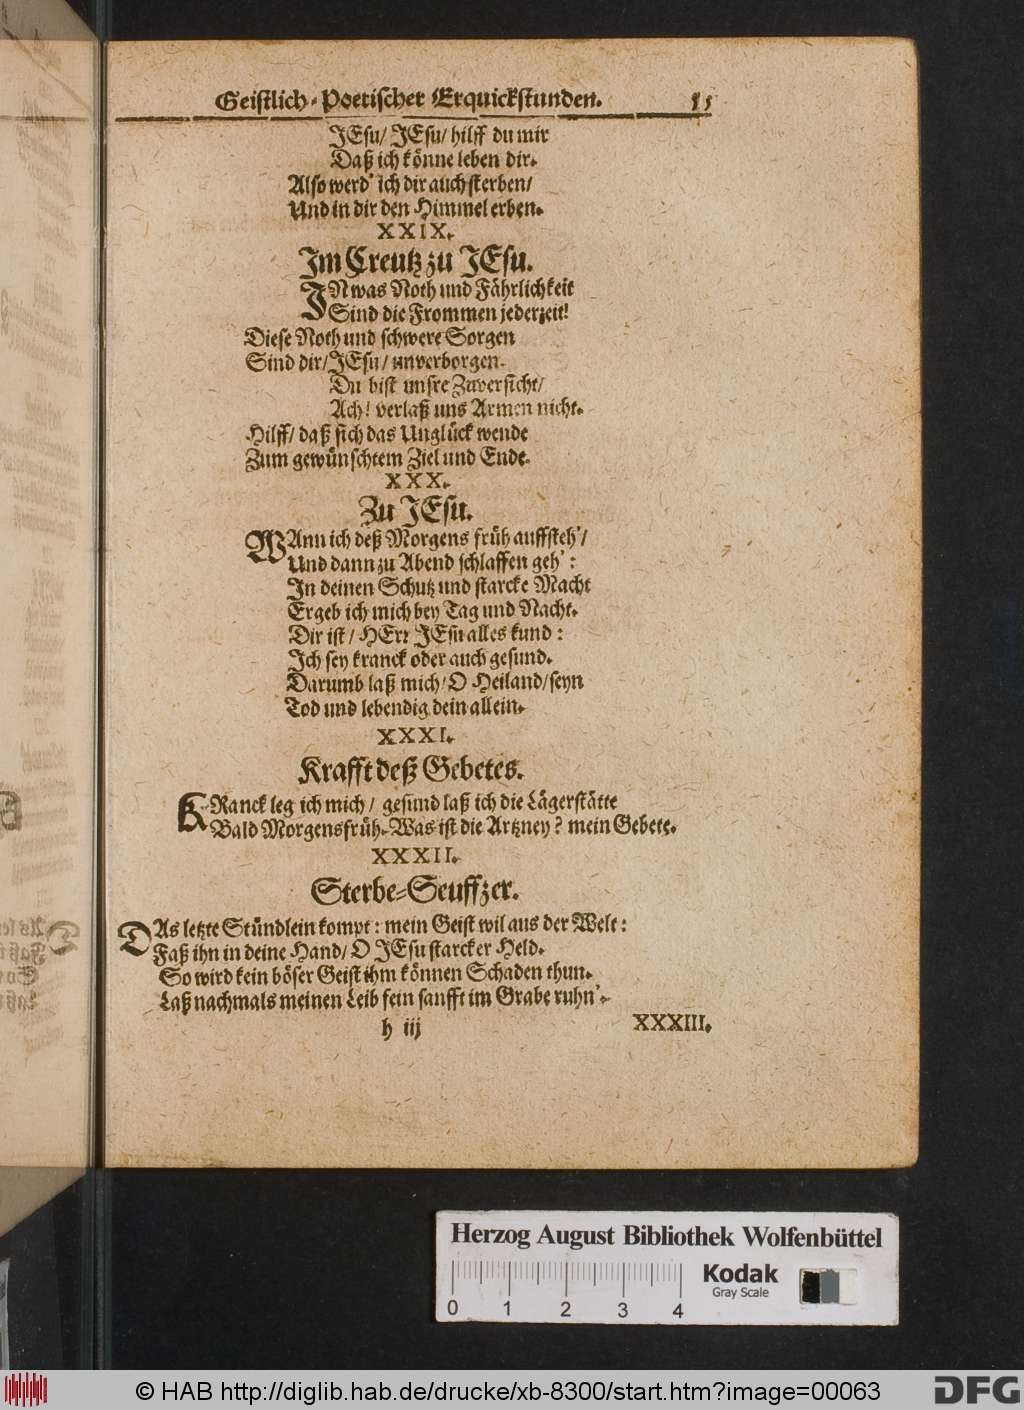 Geistlich-Poetischer Erquickstunden.
JEsu/ JEsu/ hilff du mir
Daß ich könne leben dir.
Also werd' ich dir auch sterben/
Und in dir den Himmel erben.
XXIX.
Im Creutz zu JEsu.
IN was Noth und Fährlichkeit
Sind die Frommen jederzeit!
Diese Noth und schwere Sorgen
Sind dir/ JEsu/ unverborgen.
Du bist unsre Zuversicht/
Ach! verlaß uns Armen nicht.
Hilff/ daß sich das Unglück wende
Zum gewünschtem Ziel und Ende.
XXX.
Zu JEsu.
WAnn ich deß Morgens früh auffsteh'/
Und dann zu Abend schlaffen geh':
In deinen Schutz und starcke Macht
Ergeb ich mich bey Tag und Nacht.
Dir ist/ HErr JEsu alles kund:
Ich sey kranck oder auch gesund.
Darumb laß mich/ O Heiland/ seyn
Tod und lebendig dein allein.
XXXI.
Krafft deß Gebetes.
KRanck leg ich mich/ gesund laß ich die Lägerstätte
Bald Morgens früh. Was ist die Artzney? mein Gebete.
XXXII.
Sterbe-Seuffzer.
DAs letzte Stündlein kompt: mein Geist wil aus der Welt:
Faß ihn in deine Hand/ O JEsu starcker Held.
So wird kein böser Geist ihm können Schaden thun.
Laß nachmals meinen Leib fein sanfft im Grabe ruhn'.
h iij XXXIII.
Herzog August Bibliothek Wolfenbüttel
Kodak
Gray Scale
0 1 2 3 4
© HAB http://diglib.hab.de/drucke/xb-8300/start.htm?image=00063
DFG